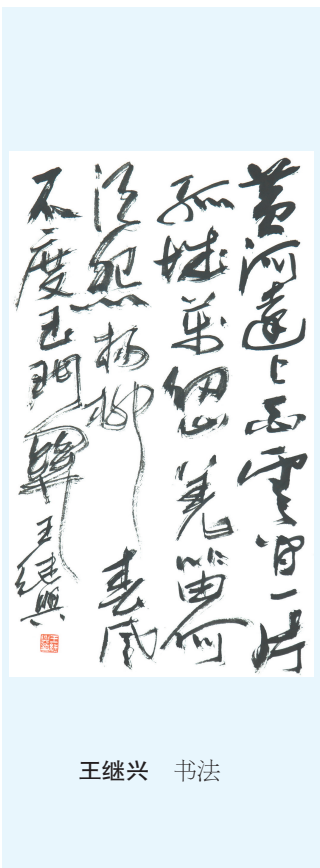 黄河遠上白雲間一片
孤城萬仞山羌笛何
須怨楊柳春風
不度玉門關 王继興
王继兴 书法